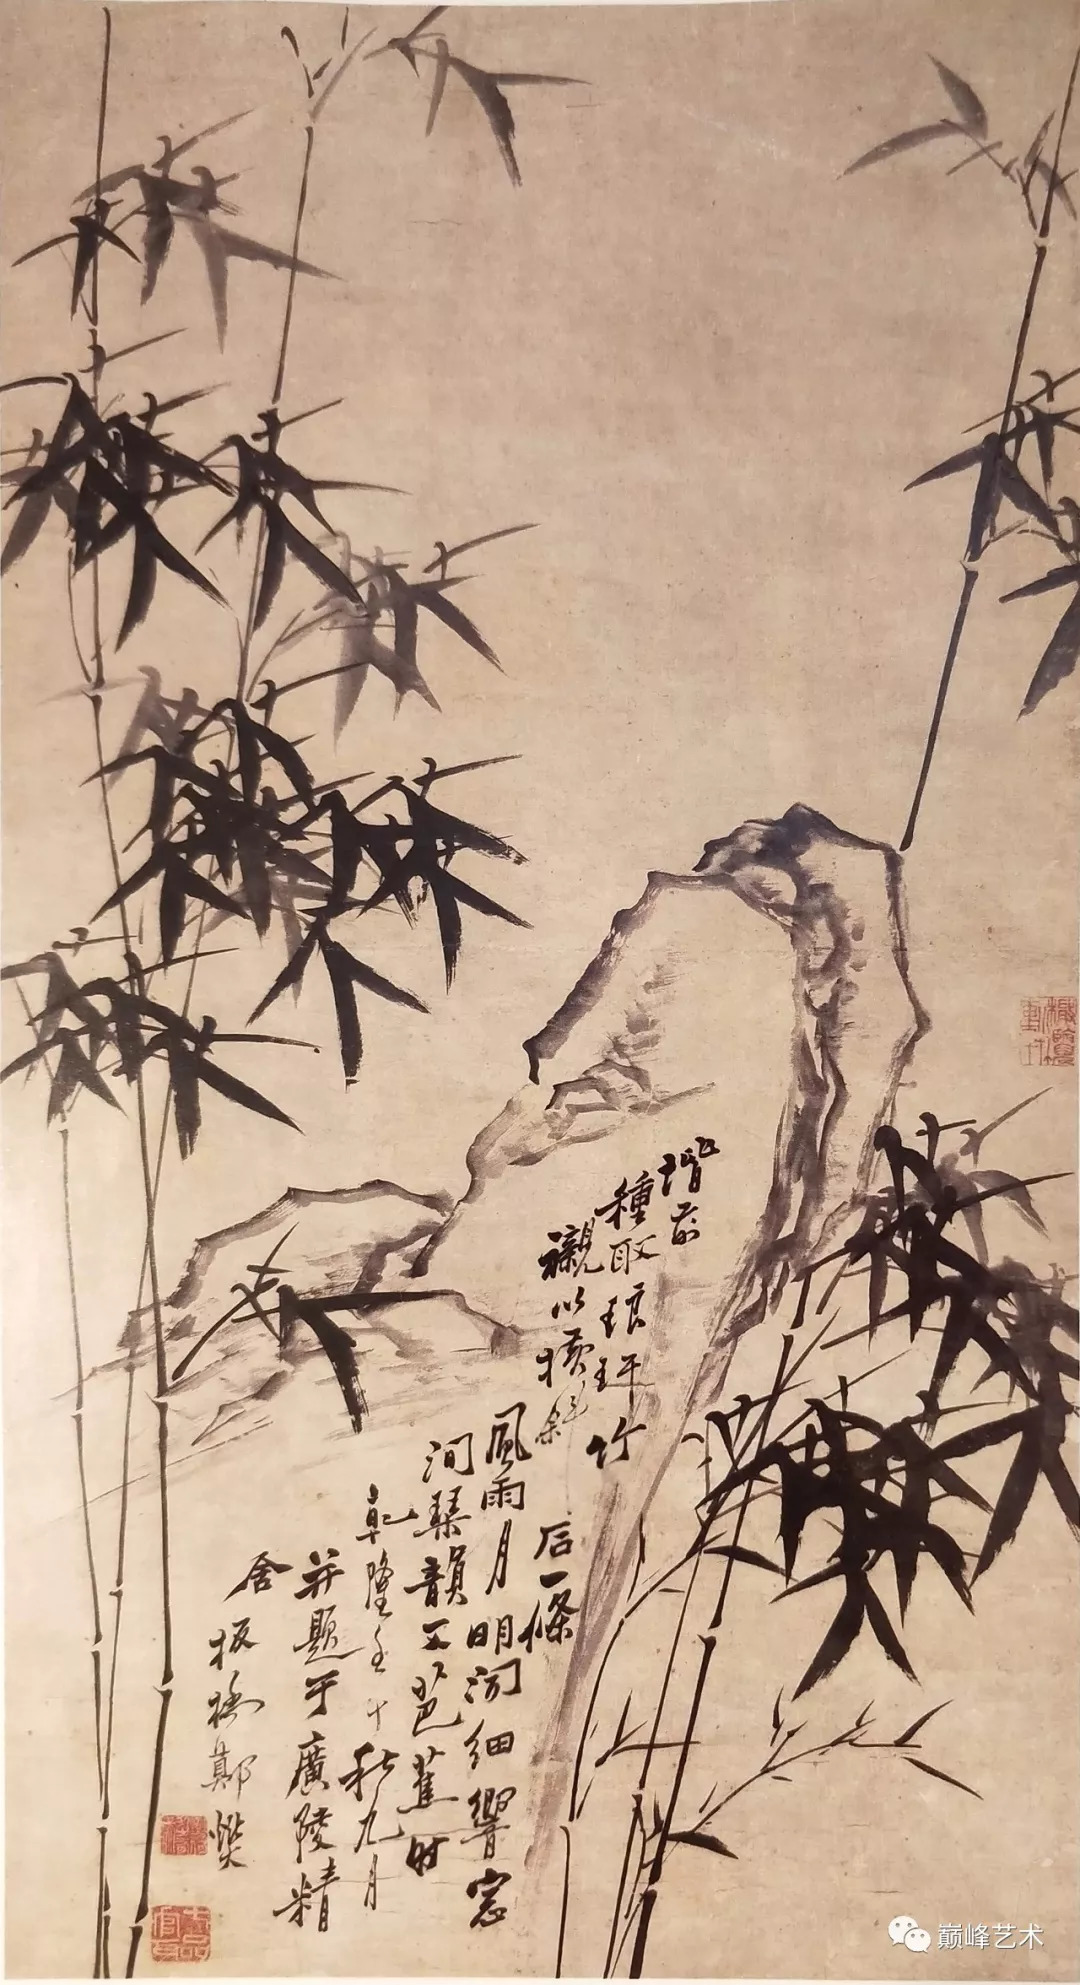 堦前
種取琅玕竹
襯以橫斜石一條
風雨月明闻細響窓
间琴韻又芭蕉 时
乾隆壬午秋九月
并題于廣陵精
舍 板橋鄭燮
七品官耳
巅峰艺术